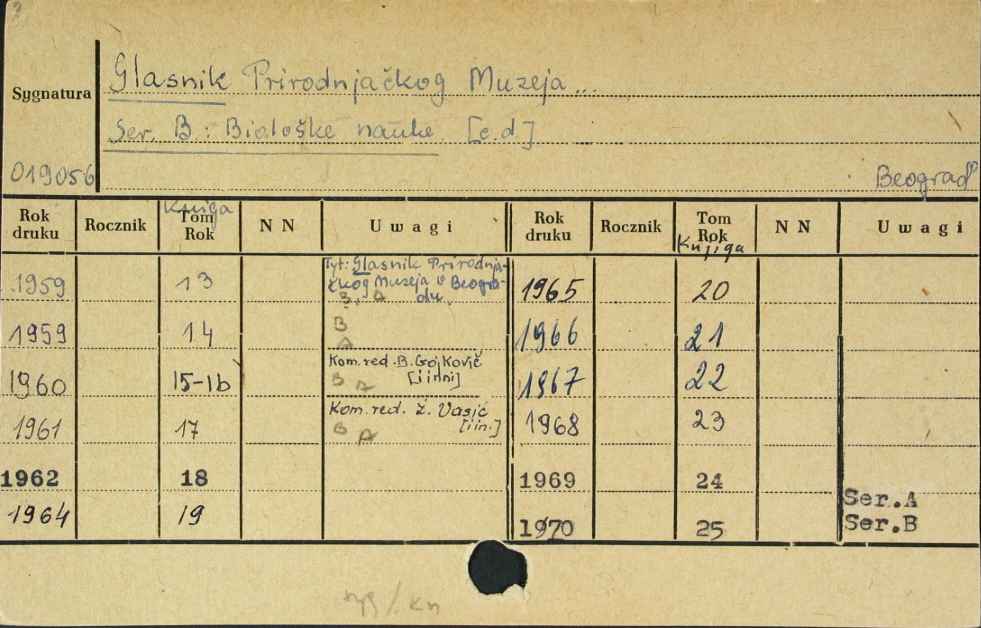 Glasnik Prirodnjačkog Muzeja...
Sygnatura
Ser. B: Biološke nauke. [c.d]
019056
Beograd
Rok druku Rocznik Knjiga Tom Rok N N Uwagi Rok druku Rocznik Tom Rok Knjiga N N Uwagi
1959 13 Tyt: Glasnik Prirodnja-
čkog Muzeja u Beogra-
du.
B, A
1965 20
1959 14 B
A
1966 21
1960 15-16 Kom. red. B. Gojković
[i inni]
B A
1967 22
1961 17 Kom. red. Ž. Vasić
[i in.]
B A
1968 23
1962 18 1969 24
1964 19 1970 25 Ser.A
Ser.B